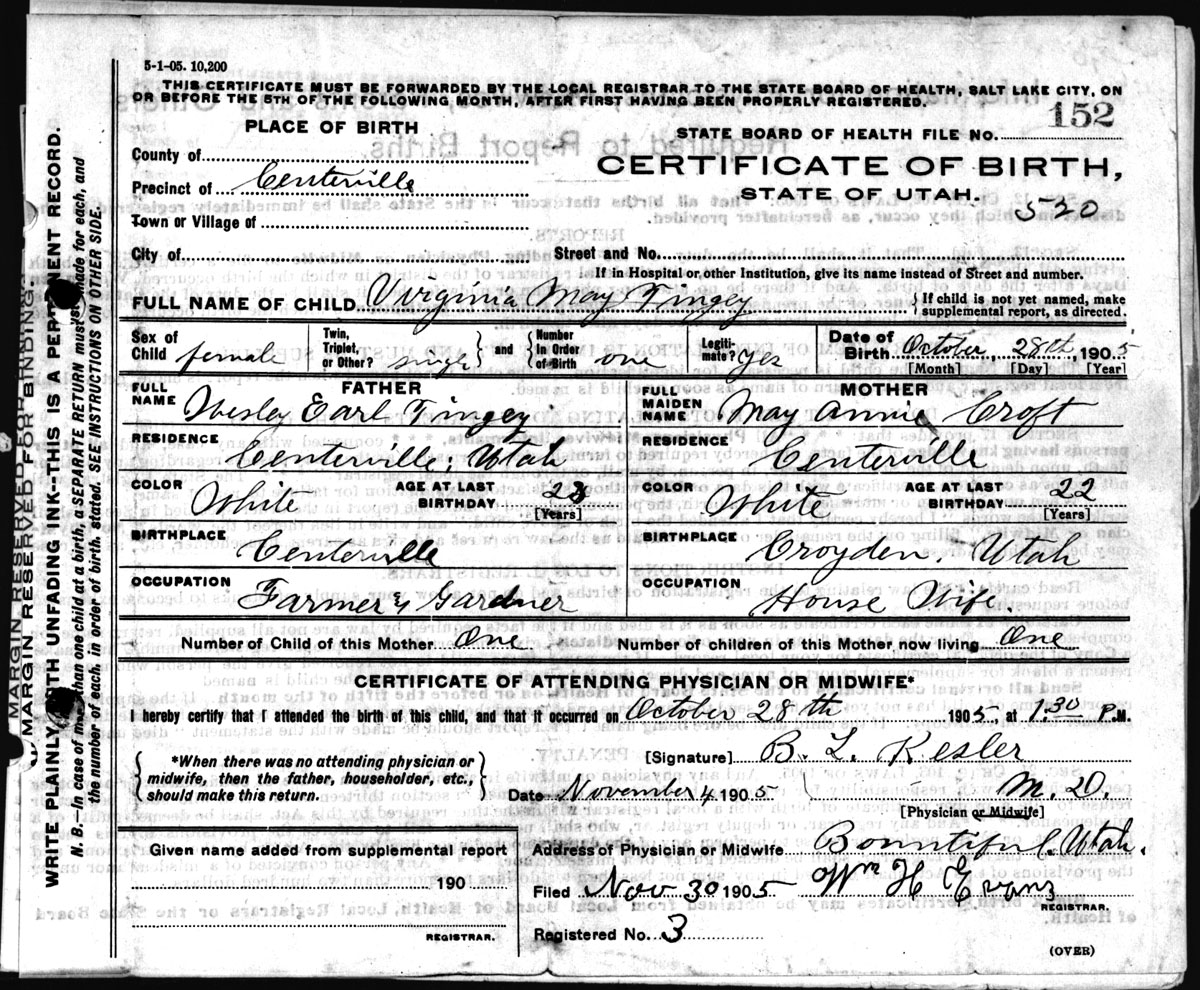 5-1-05. 10,200
THIS CERTIFICATE MUST BE FORWARDED BY THE LOCAL REGISTRAR TO THE STATE BOARD OF HEALTH, SALT LAKE CITY, ON
OR BEFORE THE 5TH OF THE FOLLOWING MONTH, AFTER FIRST HAVING BEEN PROPERLY REGISTERED.
PLACE OF BIRTH
STATE BOARD OF HEALTH FILE NO. 152
County of
CERTIFICATE OF BIRTH,
Precinct of Centerville
STATE OF UTAH.
520
Town or Village of
City of Street and No.
If in Hospital or other Institution, give its name instead of Street and number.
FULL NAME OF CHILD Virginia May Tingey { If child is not yet named, make supplemental report, as directed.
Sex of Child female Twin, Triplet, or Other? single } and { Number in Order of Birth one Legiti-mate? yes Date of Birth October 28th, 1905
[Month] [Day] [Year]
FATHER MOTHER
FULL NAME Wesley Earl Tingey FULL MAIDEN NAME May Annie Croft
RESIDENCE Centerville, Utah RESIDENCE Centerville
COLOR White AGE AT LAST BIRTHDAY 23 [Years] COLOR White AGE AT LAST BIRTHDAY 22 [Years]
BIRTHPLACE Centerville BIRTHPLACE Croyden, Utah
OCCUPATION Farmer & Gardner OCCUPATION House Wife.
Number of Child of this Mother One Number of children of this Mother now living One
CERTIFICATE OF ATTENDING PHYSICIAN OR MIDWIFE*
I hereby certify that I attended the birth of this child, and that it occurred on October 28th 1905, at 1.30 P.M.
{ *When there was no attending physician or midwife, then the father, householder, etc., should make this return. }
[Signature] B. L. Kesler
Date November 4 1905 M.D.
[Physician or Midwife]
Given name added from supplemental report
Address of Physician or Midwife Bountiful, Utah.
190
Filed Nov 30 1905 Wm H Evans
REGISTRAR.
REGISTRAR.
Registered No. 3
(OVER)
MARGIN RESERVED FOR BINDING.
WRITE PLAINLY WITH UNFADING INK--THIS IS A PERMANENT RECORD.
N. B.—In case of more than one child at a birth, a SEPARATE RETURN must be made for each, and
the number of each, in order of birth, stated. SEE INSTRUCTIONS ON OTHER SIDE.